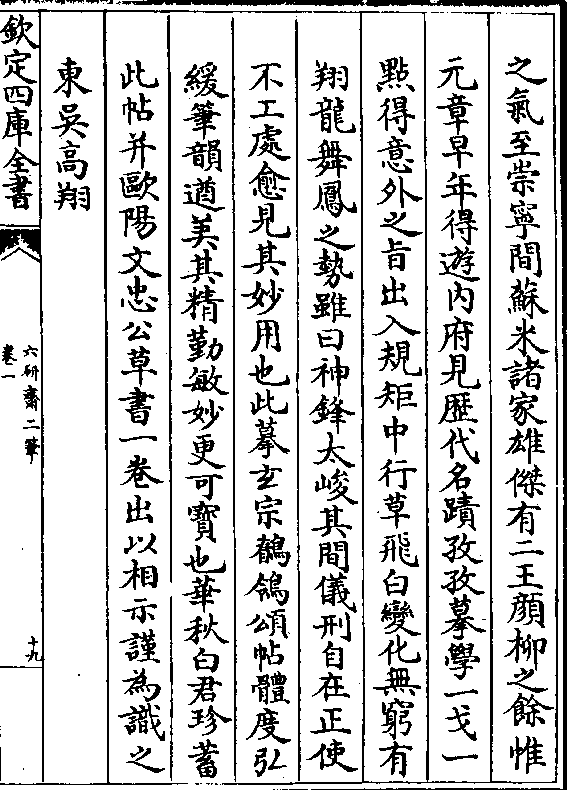 之氣至崇寧間蘇米諸家雄傑有二王顔柳之餘惟
元章早年得遊內府見歴代名蹟孜孜摹學一戈一
點得意外之旨出入規矩中行草飛白變化無窮有
翔龍舞鳳之勢雖曰神鋒太峻其間儀刑自在正使
不工處愈見其妙用也此摹玄宗鶺鴒頌帖體度弘
緩筆韻遒美其精勤敏妙更可寶也華秋白君珍蓄
此帖并歐陽文忠公草書一卷出以相示謹為識之
東吳高翔
欽定四庫全書
六研齋二筆
卷一
十九